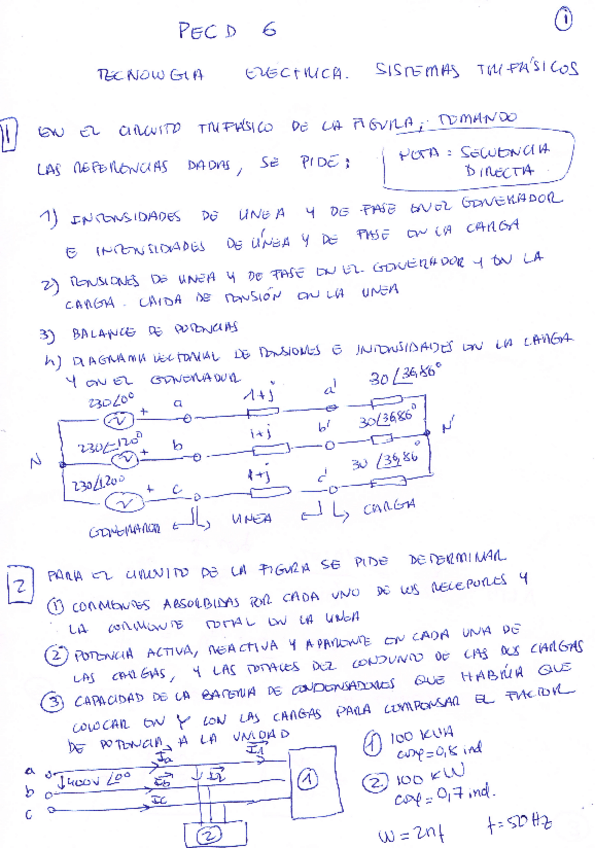 1
PECD 6
TECNOLOGIA ELECTRICA. SISTEMAS TRIFÁSICOS
1 EN EL CIRCUITO TRIFÁSICO DE LA FIGURA, TOMANDO
LAS REFERENCIAS DADAS, SE PIDE:
NOTA: SECUENCIA
DIRECTA
1) INTENSIDADES DE LINEA Y DE FASE EN EL GENERADOR
E INTENSIDADES DE LÍNEA Y DE FASE EN LA CARGA
2) TENSIONES DE LINEA Y DE FASE EN EL GENERADOR Y EN LA
CARGA. CAIDA DE TENSIÓN EN LA LINEA
3) BALANCE DE POTENCIAS
4) DIAGRAMA VECTORIAL DE TENSIONES E INTENSIDADES EN LA CARGA
Y EN EL GENERADOR
230∠0° + a 1+j a' 30∠36,86°
230∠-120° + b 1+j b' 30∠36,86°
N N'
230∠120° + c 1+j c' 30∠36,86°
GENERADOR LINEA CARGA
2 PARA EL CIRCUITO DE LA FIGURA SE PIDE DETERMINAR
① CORRIENTES ABSORBIDAS POR CADA UNO DE LOS RECEPTORES Y
LA CORRIENTE TOTAL EN LA LINEA
② POTENCIA ACTIVA, REACTIVA Y APARENTE EN CADA UNA DE
LAS CARGAS, Y LAS TOTALES DEL CONJUNTO DE LAS DOS CARGAS
③ CAPACIDAD DE LA BATERIA DE CONDENSADORES QUE HABRÍA QUE
COLOCAR EN Y CON LAS CARGAS PARA COMPENSAR EL FACTOR
DE POTENCIA A LA UNIDAD
a Ia I1
400V ∠0°
b Ib I2
c Ic
①
②
① 100 KVA
cosφ=0,8 ind
② 100 KW
cosφ=0,7 ind.
W=2πf f=50Hz